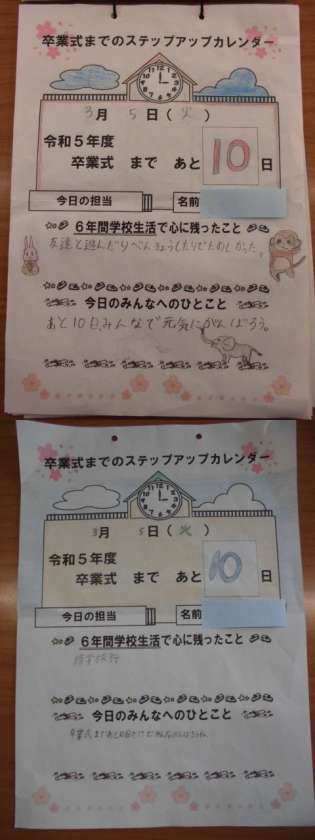 卒業式までのステップアップカレンダー
3月 5日(火)
令和5年度
卒業式 まで あと 10 日
今日の担当 名前
6年間学校生活で心に残ったこと
友達と遊んだりべんきょうしたりしてたのしかった。
今日のみんなへのひとこと
あと10日、みんなで元気にがんばろう。
卒業式までのステップアップカレンダー
3月 5日(火)
令和5年度
卒業式 まで あと 10 日
今日の担当 名前
6年間学校生活で心に残ったこと
修学旅行
今日のみんなへのひとこと
卒業式まであと10日